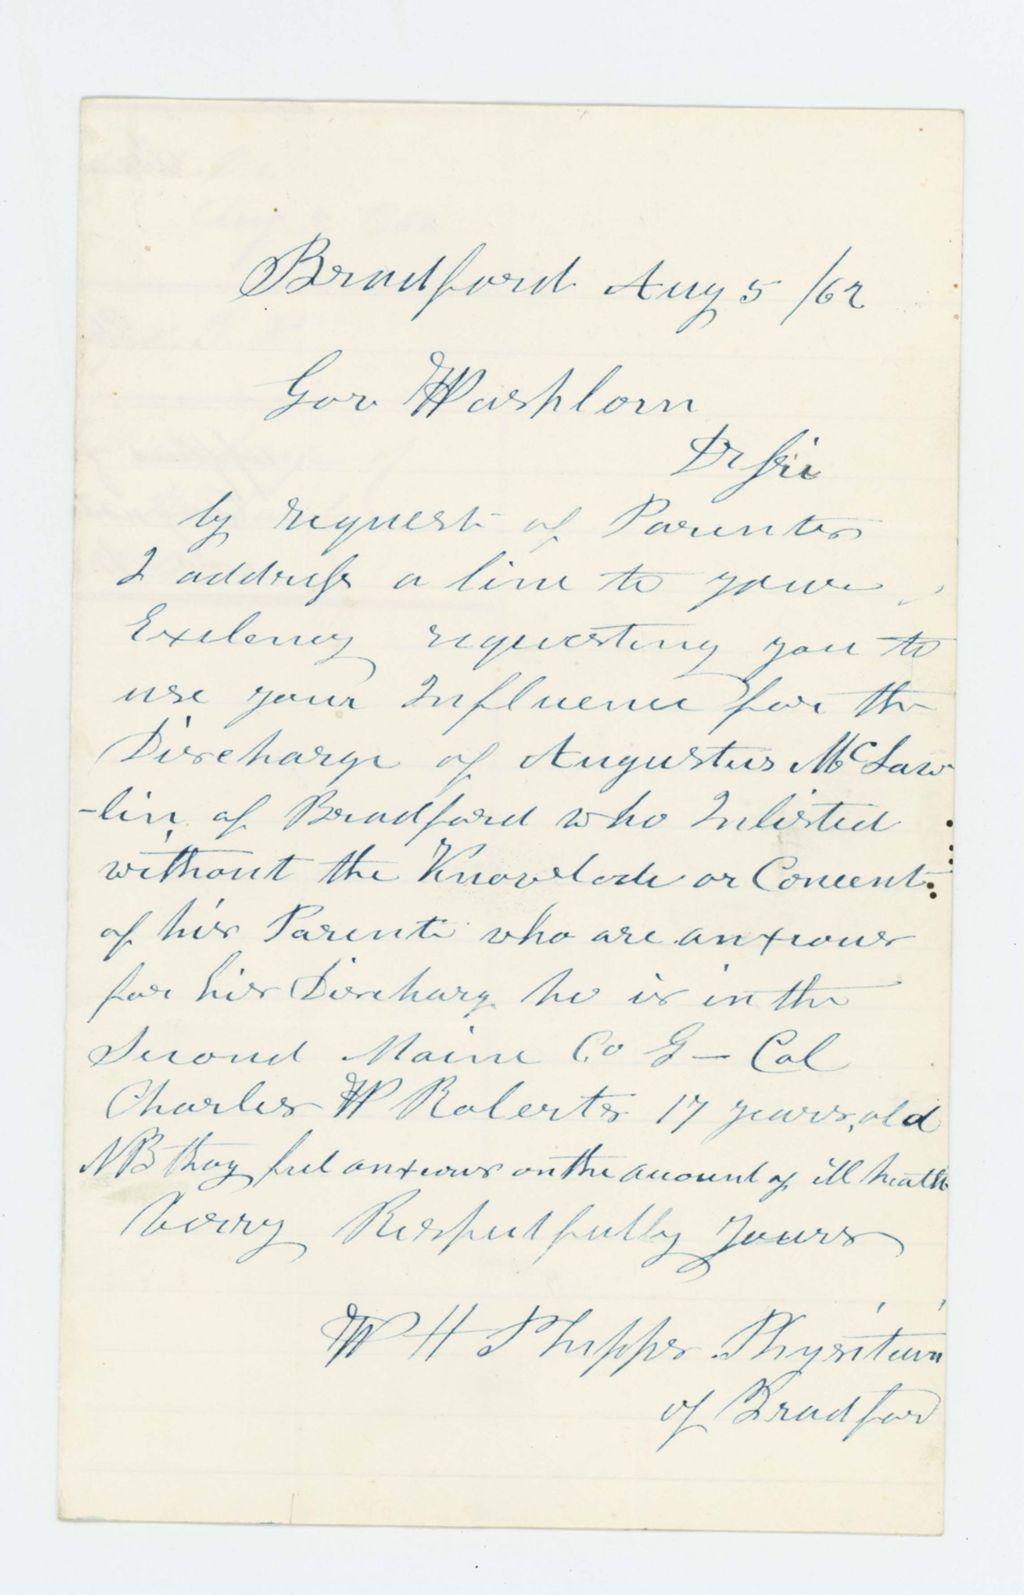 Bradford Aug 5 /62
Gov Washborn
Dr Sir
by request of Parents
I address a line to your
Exelency requesting you to
use your Influence for the
Discharge of Augustus McLaw
-lin, of Bradford who Inlisted
without the Knowelade or Concent
of his Parents who are anxious
for his Discharg he is in the
Second Maine Co G - Col
Charles W Roberts 17 years, old
NB thay feel anxious on the account of ill heath
Verry Respectfully Yours
W H Phipps Physitian
of Bradford